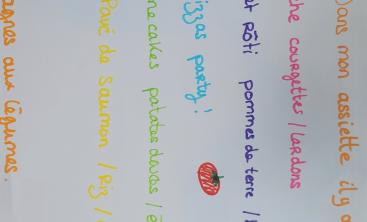 Dans mon assiette il y a
che courgettes / Lardons
et Rôti pommes de terre /
izzas party !
me cakes patates douces /
Pavé de Saumon / Riz /
agnes aux légumes.